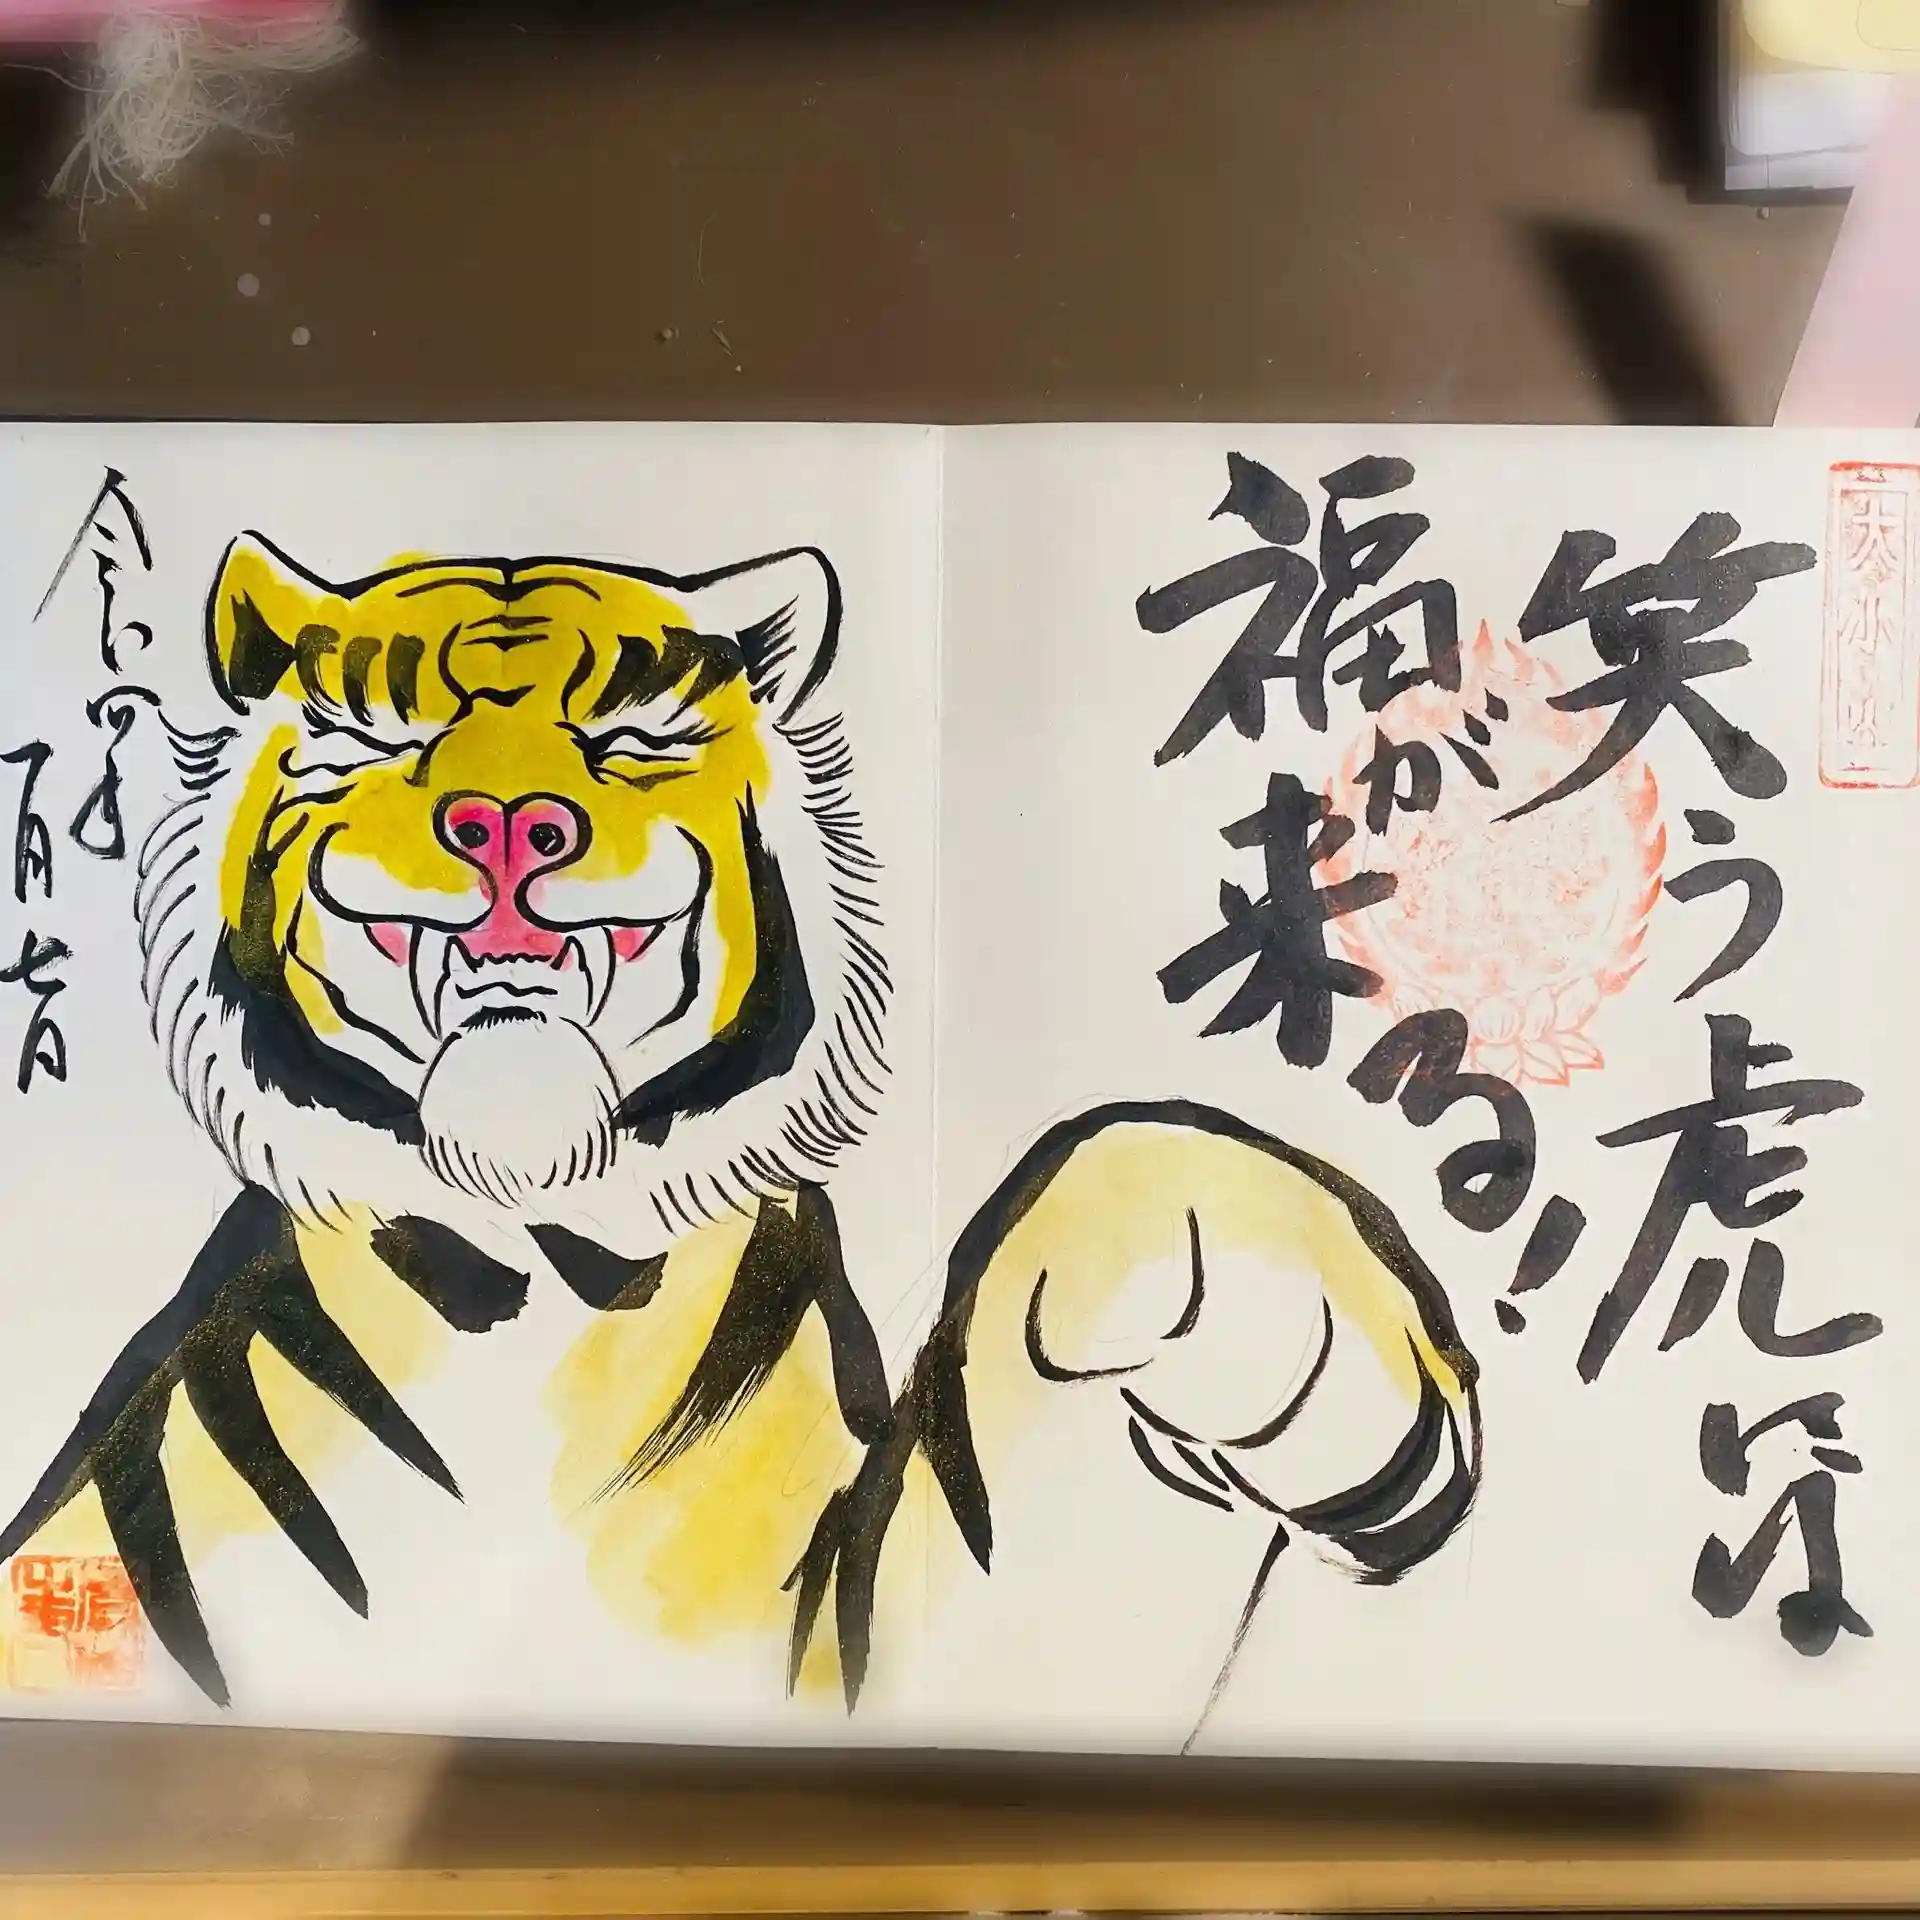 笑う虎には
福が来る!
令和四年
一月七日